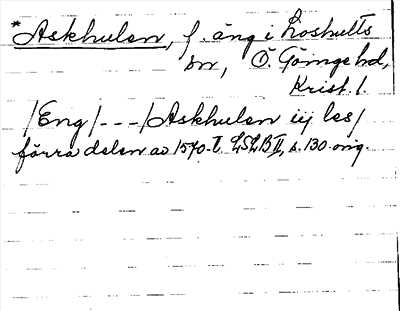 *Askhulen, f. äng i Loshults
sn, Ö. Göinge hd,
Krist. l.
/Eng/ - - - /Askhulen iij les/
förra delen av 1570-t. LSLB II, s. 130 orig.